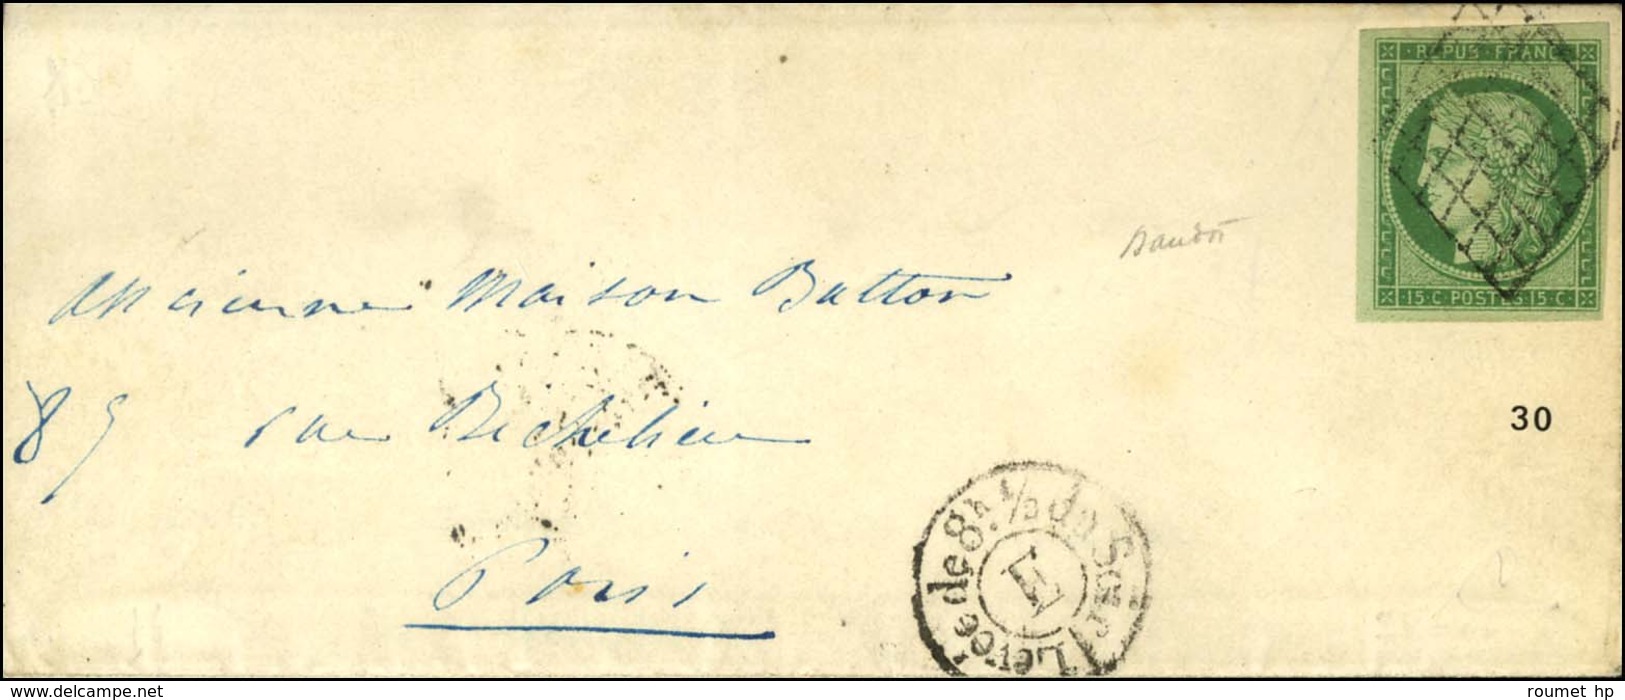 REPUB·FRANC·
·15·C·POSTES·15·C·
Ancienne Maison Batton
89 rue Richelieu
Paris
Levée de 8h. 1/2 du S.
E
30
www.delcampe.net
roumet hp